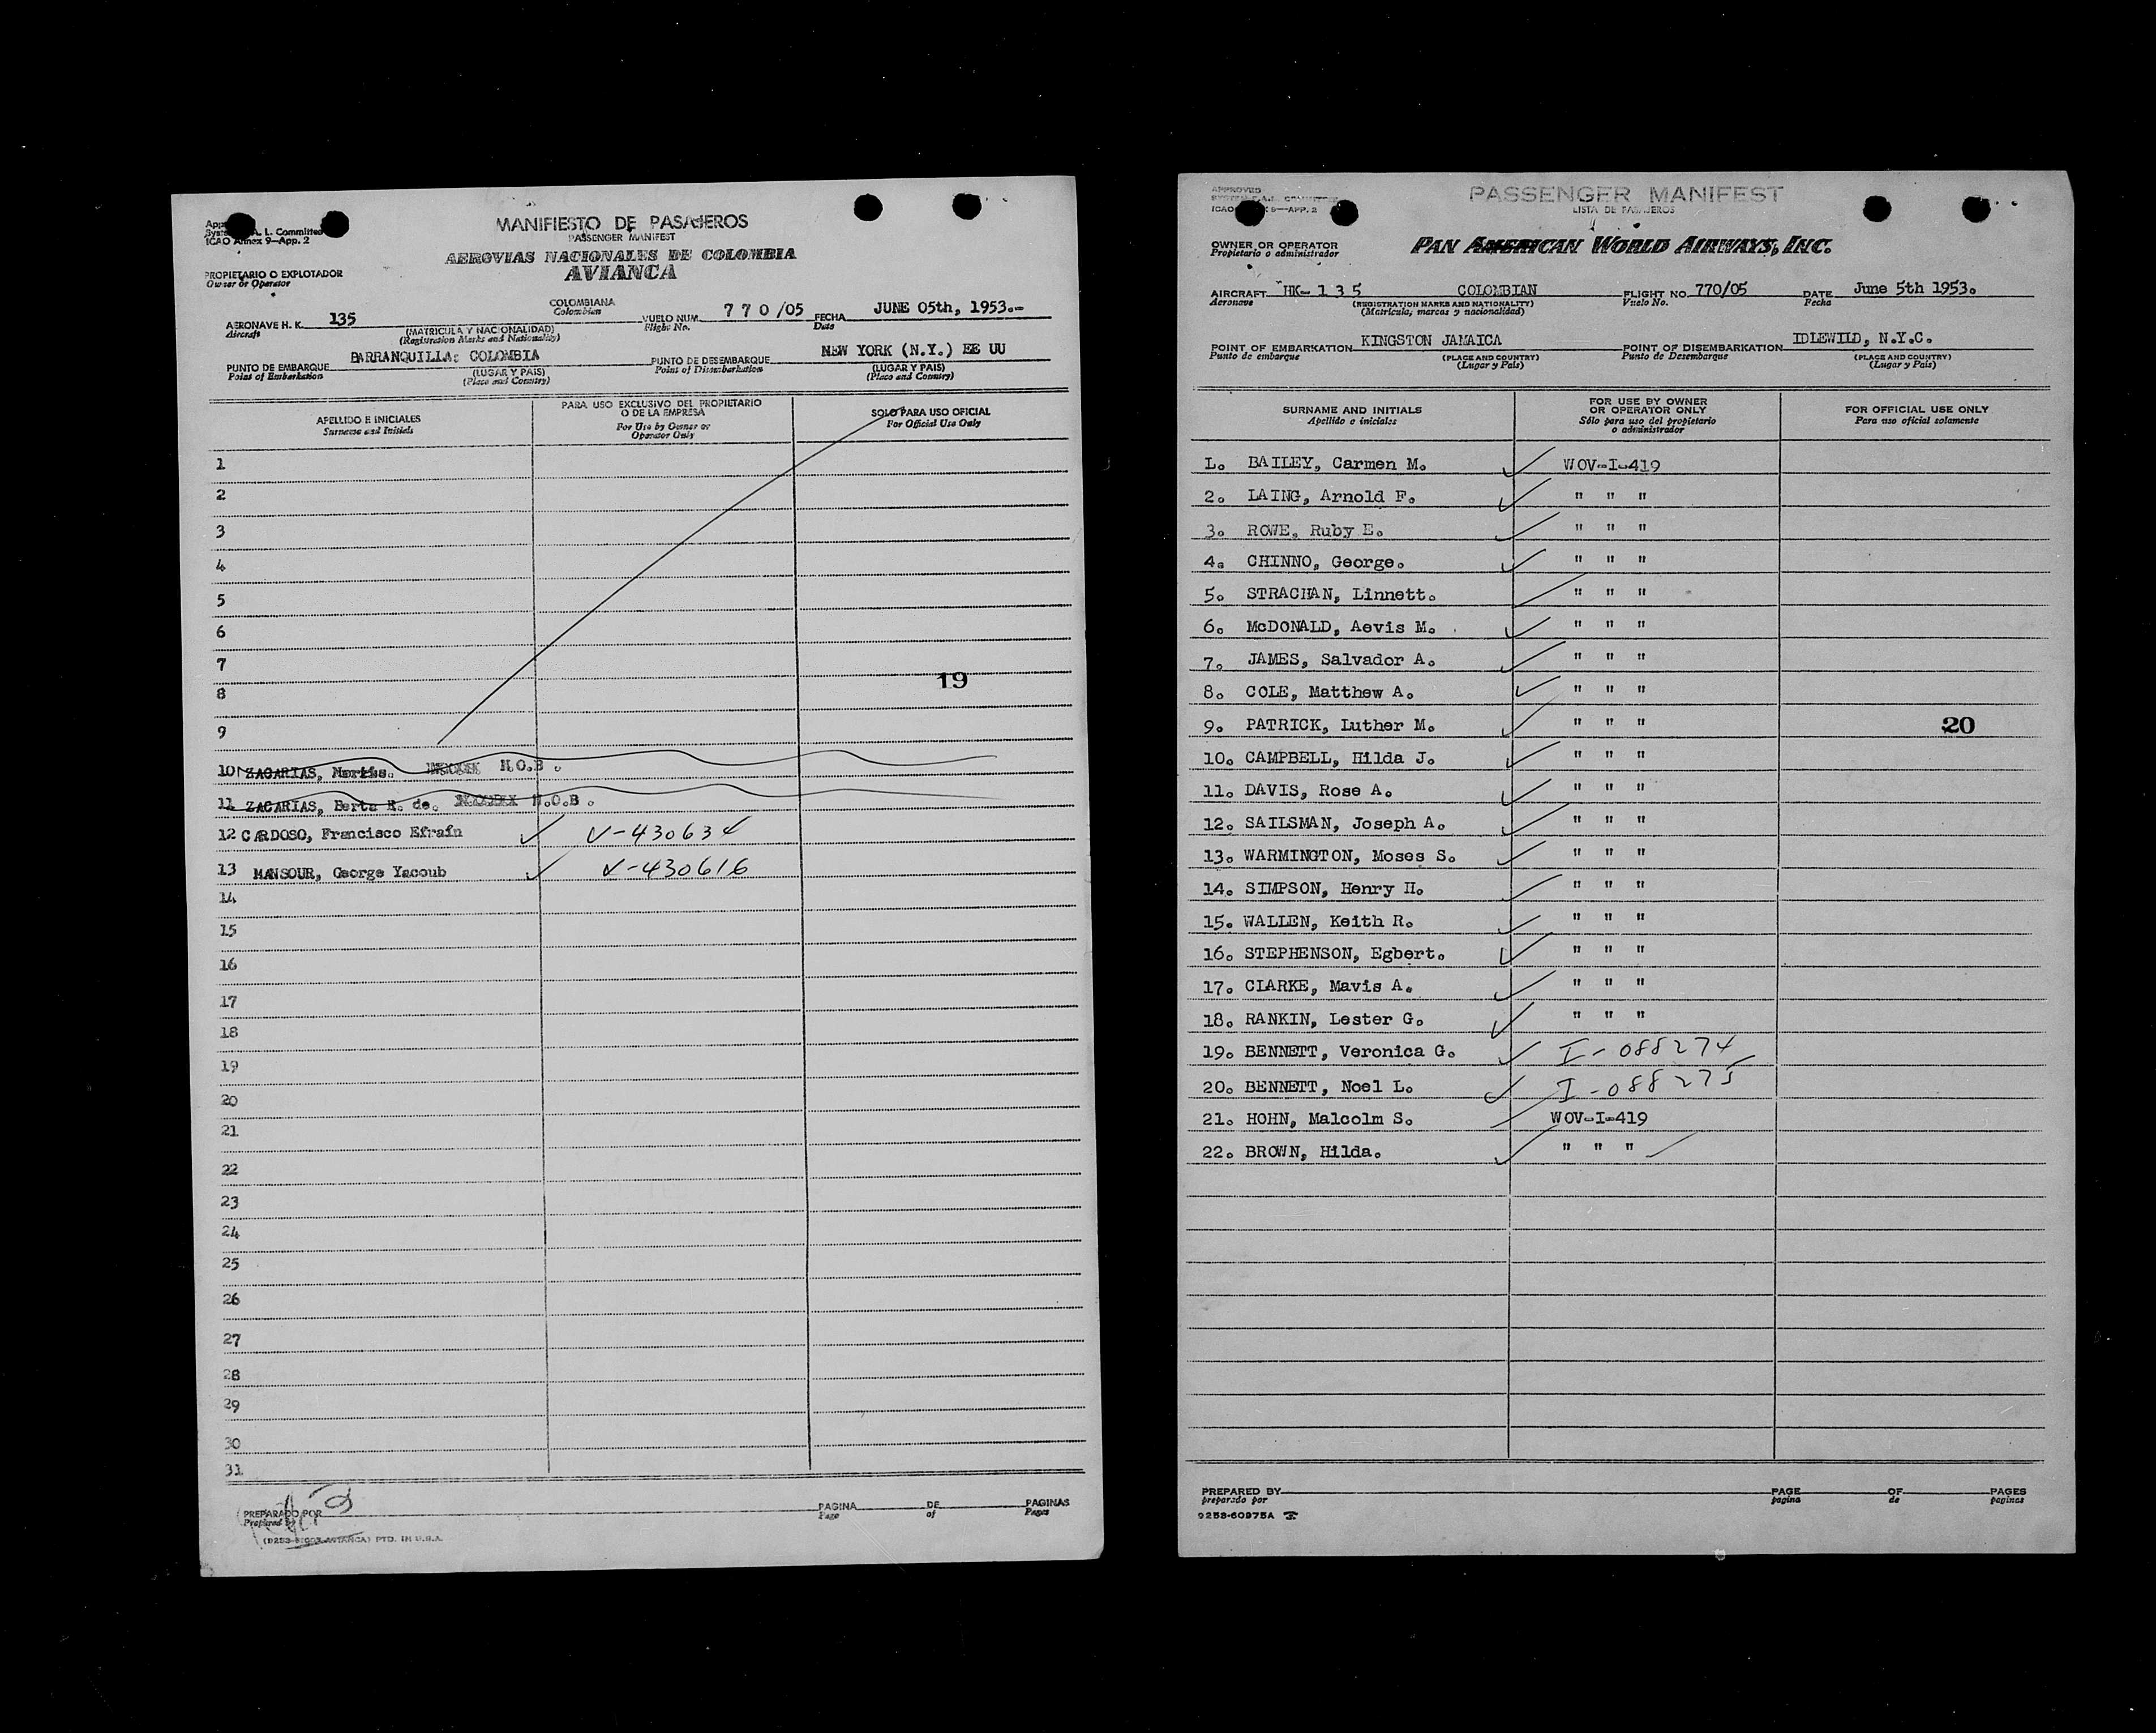 MANIFIESTO DE PASAJEROS
PASSENGER MANIFEST
A. L. Committee
ICAO Annex 9—App. 2
AEROVIAS NACIONALES DE COLOMBIA
AVIANCA
PROPIETARIO O EXPLOTADOR
Owner or Operator
AERONAVE H. K. 135 COLOMBIANA VUELO NUM. 770/05 FECHA JUNE 05th, 1953.-
Aircraft (MATRICULA Y NACIONALIDAD) Colombian Flight No. Date
(Registration Marks and Nationality)
PUNTO DE EMBARQUE BARRANQUILLA: COLOMBIA PUNTO DE DESEMBARQUE NEW YORK (N.Y.) EE UU
Point of Embarkation (LUGAR Y PAIS) Point of Disembarkation (LUGAR Y PAIS)
(Place and Country) (Place and Country)
APELLIDO E INICIALES PARA USO EXCLUSIVO DEL PROPIETARIO O DE LA EMPRESA SOLO PARA USO OFICIAL
Surname and Initials For Use by Owner or Operator Only For Official Use Only
1
2
3
4
5
6
7
8 19
9
10 ZACARIAS, N.O.B.
11 ZACARIAS, Berta R. de. N.O.B.
12 CARDOSO, Francisco Efraín V-430634
13 MANSOUR, George Yacoub V-430616
14
15
16
17
18
19
20
21
22
23
24
25
26
27
28
29
30
31
PREPARADO POR PAGINA DE PAGINAS
Prepared by Page of Pages
PTD. IN U.S.A.
APPROVED PASSENGER MANIFEST
LISTA DE PASAJEROS
ICAO 9—APP. 2
OWNER OR OPERATOR PAN AMERICAN WORLD AIRWAYS, INC.
Propietario o administrador
AIRCRAFT HK-135 COLOMBIAN FLIGHT NO. 770/05 DATE June 5th 1953.
Aeronave (REGISTRATION MARKS AND NATIONALITY) Vuelo No. Fecha
(Matricula, marcas y nacionalidad)
POINT OF EMBARKATION KINGSTON JAMAICA POINT OF DISEMBARKATION IDLEWILD, N.Y.C.
Punto de embarque (PLACE AND COUNTRY) Punto de Desembarque (PLACE AND COUNTRY)
(Lugar y País) (Lugar y País)
SURNAME AND INITIALS FOR USE BY OWNER OR OPERATOR ONLY FOR OFFICIAL USE ONLY
Apellido e iniciales Sólo para uso del propietario o administrador Para uso oficial solamente
L. BAILEY, Carmen M. WOV-I-419
2. LAING, Arnold F. " " "
3. ROWE, Ruby E. " " "
4. CHINNO, George. " " "
5. STRACHAN, Linnett. " " "
6. McDONALD, Aevis M. " " "
7. JAMES, Salvador A. " " "
8. COLE, Matthew A. " " "
9. PATRICK, Luther M. " " " 20
10. CAMPBELL, Hilda J. " " "
11. DAVIS, Rose A. " " "
12. SAILSMAN, Joseph A. " " "
13. WARMINGTON, Moses S. " " "
14. SIMPSON, Henry H. " " "
15. WALLEN, Keith R. " " "
16. STEPHENSON, Egbert. " " "
17. CLARKE, Mavis A. " " "
18. RANKIN, Lester G. " " "
19. BENNETT, Veronica G. I-088274
20. BENNETT, Noel L. I-088275
21. HOHN, Malcolm S. WOV-I-419
22. BROWN, Hilda. " " "
PREPARED BY PAGE OF PAGES
preparado por pagina de paginas
9258-60975A